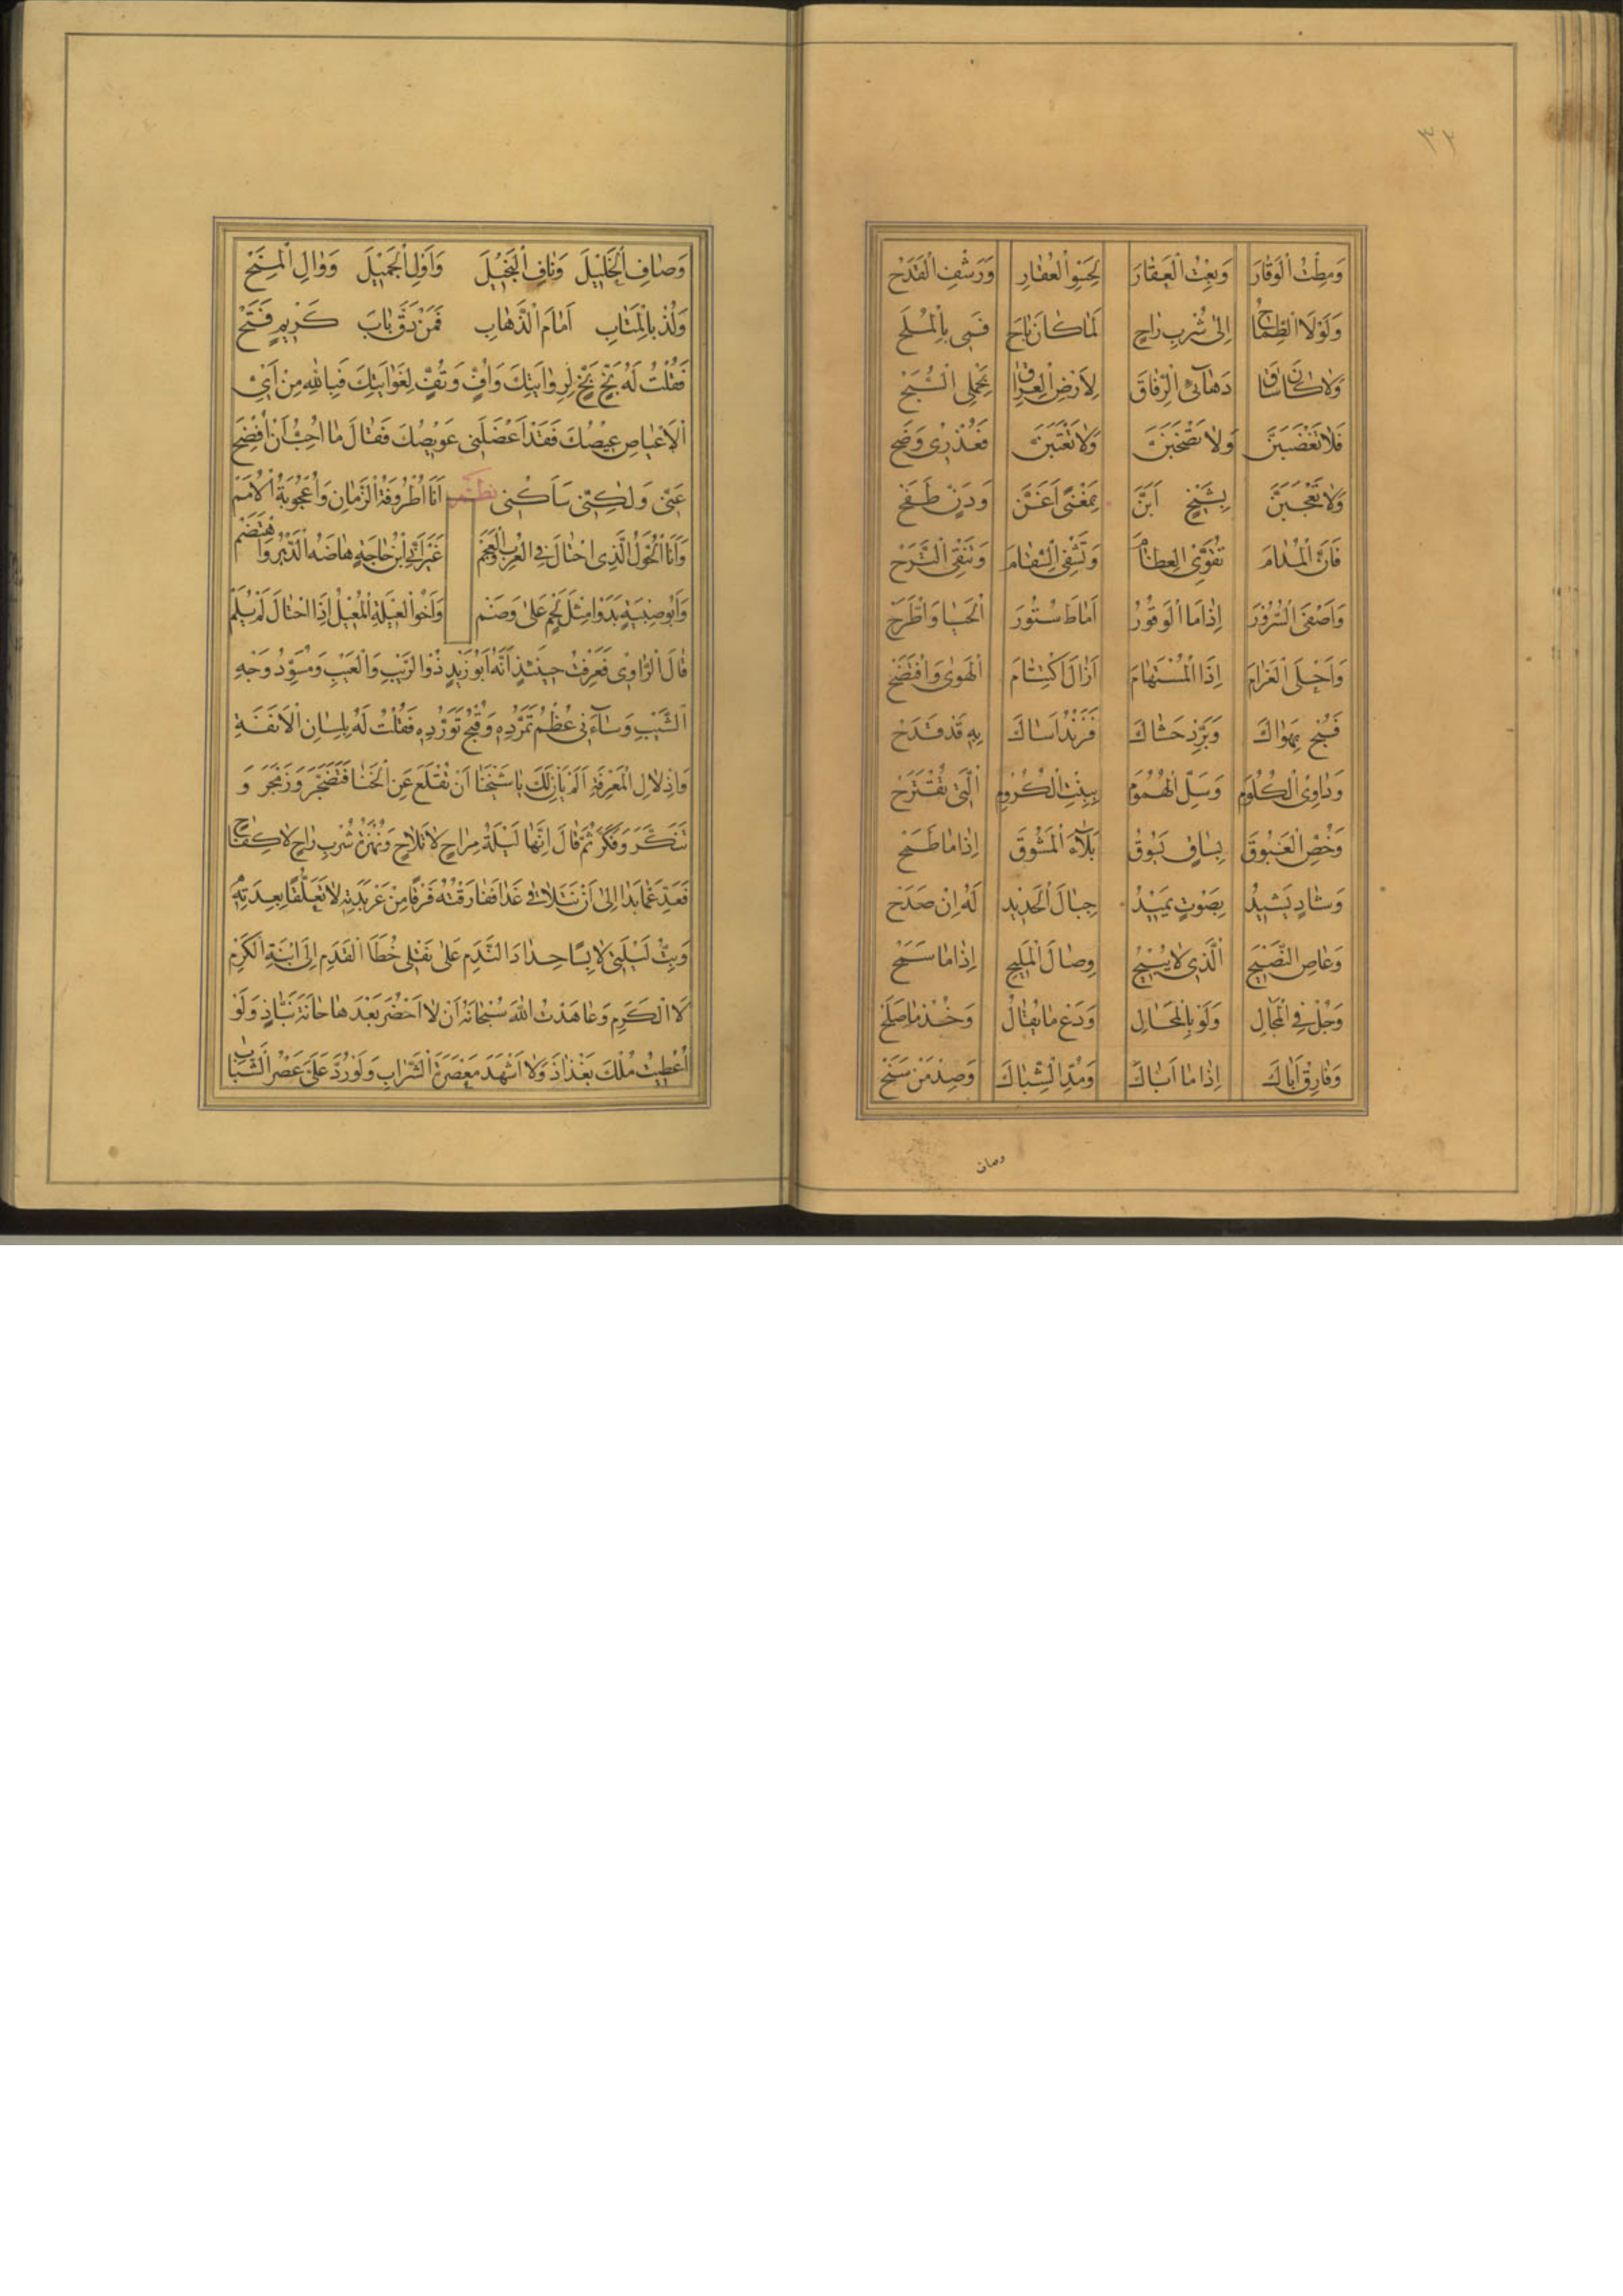 ٣٢
وَمِطْتُ الْوَقَارَ وَبِعْتُ الْعَقَارَ لِحَسْوِ الْعُقَارِ وَرَشْفِ الْقَدَحْ
وَلَوْلَا الطِّمَاحُ اِلٰى شُرْبِ رَاحٍ لَمَا كَانَ بَاحَ فَمِى بِالْمُلَحْ
وَلَا كَانَ سَاقَ دَهَآئِى الرِّفَاقَ لِاَرْضِ الْعِرَاقِ بِحَمْلِى السُّبَحْ
فَلَا تَغْضَبَنَّ وَلَا تَصْخَبَنَّ وَلَا تَعْتَبَنَّ فَعُذْرِى وَضَحْ
وَلَا تَعْجَبَنَّ بِشَيْخٍ اَبَنَّ بِمَغْنًى اَغَنَّ وَدَنٍّ طَفَحْ
فَاَنَّ الْمُدَامَ تُقَوِّى الْعِظَامَ وَتَشْفِى السِّقَامَ وَتَنْفِى التَّرَحْ
وَاَصْفَى السُّرُوْرِ اِذَا مَا الْوَقُوْرُ اَمَاطَ سُتُوْرَ الْحَيَا وَاطَّرَحْ
وَاَحْلَى الْغَرَامِ اِذَا الْمُسْتَهَامُ اَزَالَ اكْتِتَامَ الْهَوٰى وَافْتَضَحْ
فَبُحْ بِهَوَاكَ وَبَرِّدْ حَشَاكَ فَزَنْدُ اَسَاكَ بِهِ قَدْ قَدَحْ
وَدَاوِى الْكُلُوْمَ وَسَلِّ الْهُمُوْمَ بِبِنْتِ الْكُرُوْمِ الَّتِى تُقْتَرَحْ
وَخُصِّ الْغَبُوْقَ بِسَاقٍ يَسُوْقُ بَلَآءَ الْمَشُوْقِ اِذَا مَا طَمَحْ
وَشَادٍ يَشِيْدُ بِصَوْتٍ تَمِيْدُ جِبَالُ الْحَدِيْدِ لَهُ اِنْ صَدَحْ
وَعَاصِ النَّصِيْحَ الَّذِى لَا يُبِيْحُ وِصَالَ الْمَلِيْحِ اِذَا مَا سَمَحْ
وَجُلْ فِى الْمِحَالِ وَلَوْ بِالْمُحَالِ وَدَعْ مَا يُقَالُ وَخُذْ مَا صَلَحْ
وَفَارِقْ اَبَاكَ اِذَا مَا اَبَاكَ وَمُدَّ الشِّبَاكَ وَصِدْ مَنْ سَنَحْ
وصاف
وَصَافِ الْخَلِيْلَ وَنَافِ الْبَخِيْلَ وَاَوْلِ الْجَمِيْلَ وَوَالِ الْمِنَحْ
وَلُذْ بِالْمَتَابِ اَمَامَ الذَّهَابِ فَمَنْ دَقَّ بَابَ كَرِيْمٍ فَتَحْ
فَقُلْتُ لَهُ بَخٍ بَخٍ لِرِوَايَتِكَ وَاُفٍّ وَتُفٍّ لِغَوَايَتِكَ فَبِاللهِ مِنْ اَىِّ
الْاَعْيَاصِ عِيْصُكَ فَقَدْ اَعْضَلَنِى عَوِيْصُكَ فَقَالَ مَا اُحِبُّ اَنْ اُفْصِحَ
عَنِّى وَلٰكِنِّى سَاَكْنِى نظم اَنَا اُطْرُوْفَةُ الزَّمَانِ وَاُعْجُوْبَةُ الْاُمَمْ
وَاَنَا الْحُوَّلُ الَّذِى احْتَالَ فِى الْعُرْبِ وَالْعَجَمْ غَيْرَ اَنِّى ابْنُ حَاجَةٍ هَاضَهُ الدَّهْرُ وَاهْتَضَمْ
وَاَبُو صِبْيَةٍ بَدَوْا مِثْلَ لَحْمٍ عَلٰى وَضَمْ وَاَخُو الْعَيْلَةِ الْمُعِيْلُ اِذَا احْتَالَ لَمْ يُلَمْ
قَالَ الرَّاوِى فَعَرَفْتُ حِيْنَئِذٍ اَنَّهُ اَبُوْ زَيْدٍ ذُوْ الرَّيْبِ وَالْعَيْبِ وَمُسَوِّدُ وَجْهِ
الشَّيْبِ وَسَآءَنِى عُظْمُ تَمَرُّدِهِ وَقُبْحُ تَوَرُّدِهِ فَقُلْتُ لَهُ بِلِسَانِ الْاَنَفَةِ
وَاِدْلَالِ الْمَعْرِفَةِ اَلَمْ يَاْنِ لَكَ يَا شَيْخَنَا اَنْ تُقْلِعَ عَنِ الْخَنَا فَتَضَجَّرَ وَزَمْجَرَ وَ
تَنَكَّرَ وَفَكَّرَ ثُمَّ قَالَ اِنَّهَا لَيْلَةُ مِرَاحٍ لَا تَلَاحٍ وَنُهْزَةُ شُرْبِ رَاحٍ لَا كِفَاحٍ
فَعَدِّ عَمَّا بَدَا اِلٰى اَنْ نَتَلَاقٰى غَدًا فَفَارَقْتُهُ فَرَقًا مِنْ عَرْبَدَتِهِ لَا تَعَلُّقًا بِعِدَتِهِ
وَبِتُّ لَيْلَتِى لَابِسًا حِدَادَ النَّدَمِ عَلٰى نَقْلِى خُطَا الْقَدَمِ اِلَى ابْنَةِ الْكَرْمِ
لَا الْكَرَمِ وَعَاهَدْتُ اللهَ سُبْحَانَهُ اَنْ لَا اَحْضُرَ بَعْدَهَا حَانَةَ نَبَّاذٍ وَلَوْ
اُعْطِيْتُ مُلْكَ بَغْدَاذَ وَلَا اَشْهَدَ مَعْصَرَةَ الشَّرَابِ وَلَوْ رُدَّ عَلَىَّ عَصْرُ الشَّبَابِ